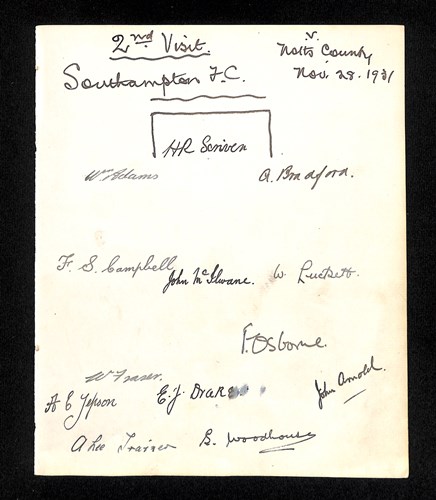 2nd Visit.
v.
Notts County
Nov. 28. 1931
Southampton F.C.
HR Scriven
Wm Adams
A. Bradford.
F. S. Campbell
John McIlwane.
W Luckett.
F. Osborne.
W Fraser.
A E Jepson
E.J. Drake
John Arnold.
A Lee Trainer
S. Woodhouse